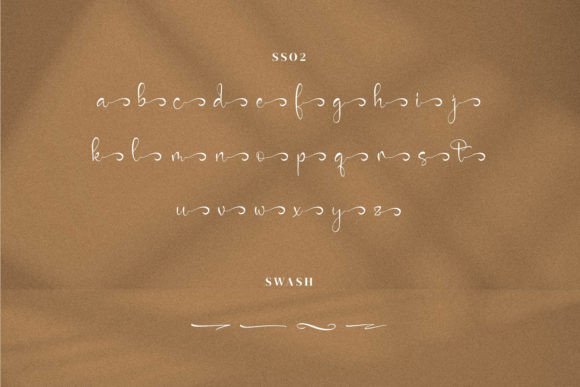 SS02
a b c d e f g h i j
k l m n o p q r s t
u v w x y z
SWASH